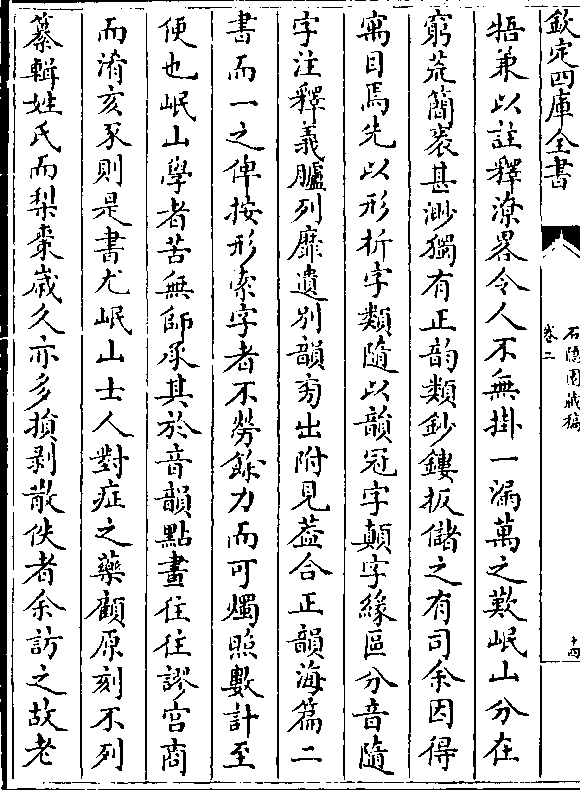 欽定四庫全書
石隱園藏稿
卷二
十四
牾兼以註釋潦畧令人不無掛一漏萬之歎岷山分在
窮荒簡裘甚渺獨有正韵類鈔鏤扳儲之有司余因得
寓目焉先以形析字類隨以韻冠字顛字緣區分音隨
字注釋義臚列靡遺别韻旁出附見葢合正韻海篇二
書而一之俾按形索字者不勞餘力而可燭照數計至
便也岷山學者苦無師承其於音韻點畫往往謬宫商
而淆亥豕則是書尤岷山士人對症之藥顧原刻不列
纂輯姓氏而梨棗歲久亦多損剥散佚者余訪之故老